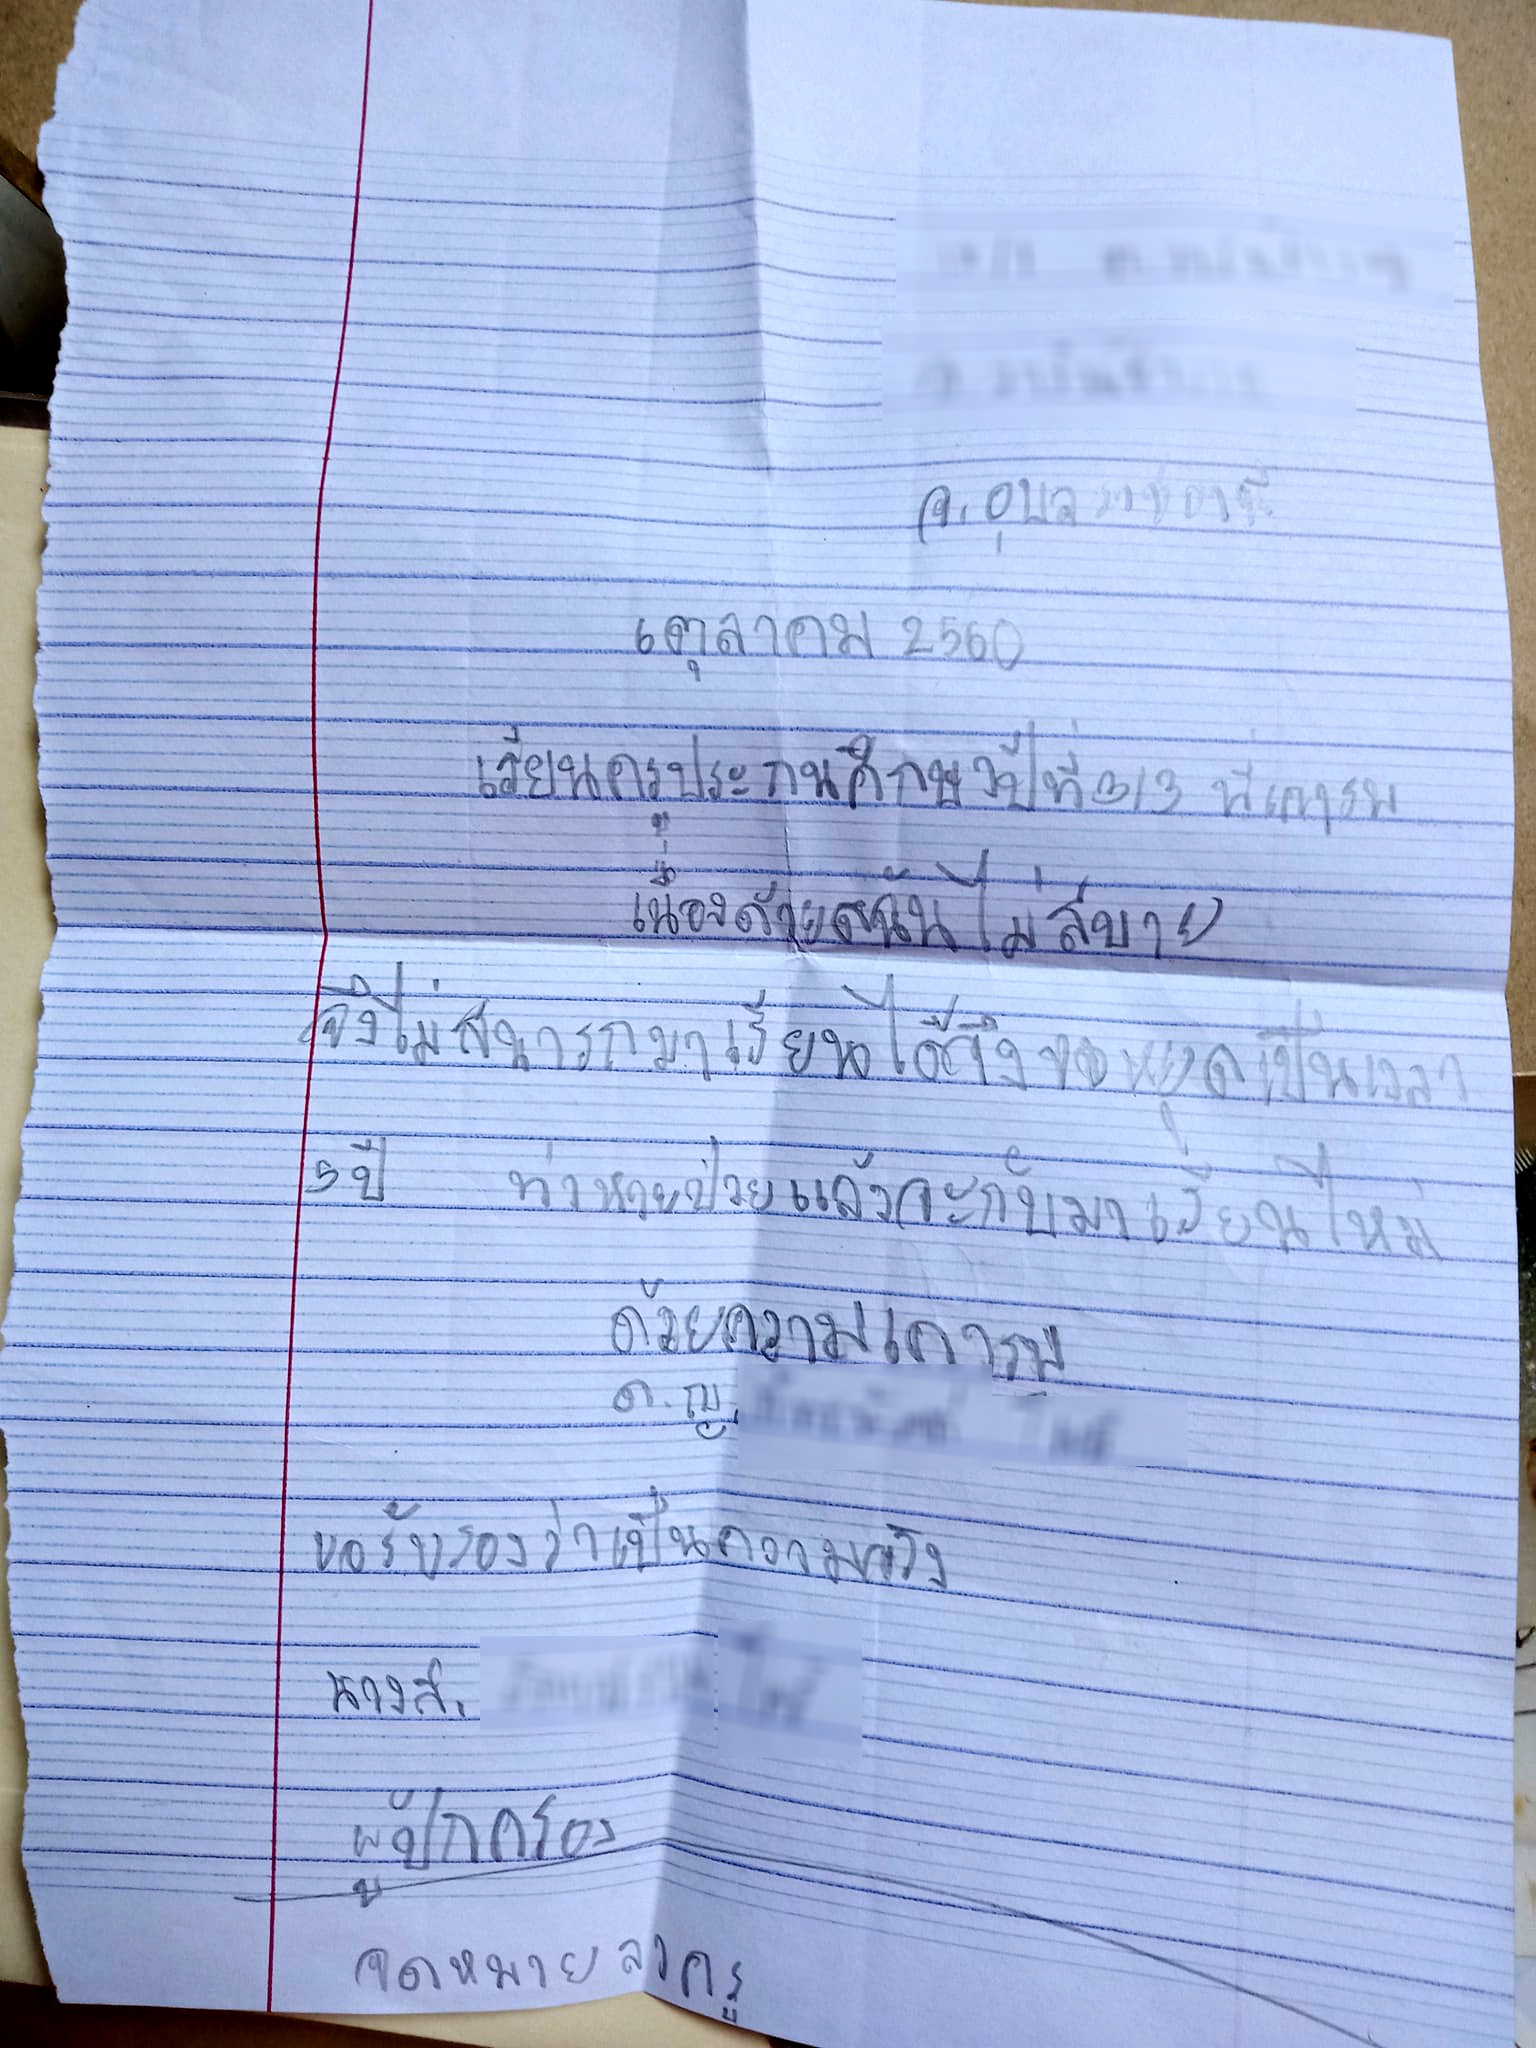 จ. อุบลราชธานี
6 ตุลาคม 2560
เรียนครูประถมศึกษาปีที่ 3/3 ที่เคารพ
เนื่องด้วยดิฉันไม่สบาย
จึงไม่สามารถมาเรียนได้จึงขอหยุดเป็นเวลา
5 ปี ถ่าหายป่วยแล้วจะกับมาเรียนไหม่
ด้วยความเคารพ
ด.ญ.
ขอรับรองว่าเป็นความจริง
นางส.
ผู้ปกครอง
จดหมายลาครู